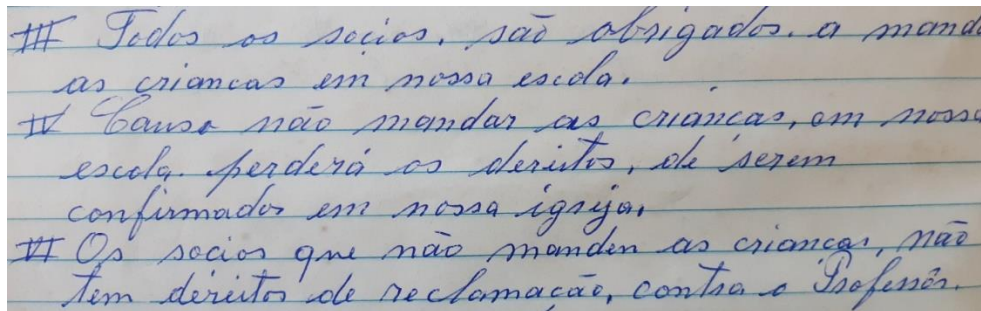 III Todos os socios. são obrigados. a manda
as criancas em nossa escola.
IV Causo não mandar as criancas, em nossa
escola. perderá os dereitos, de serem
confirmados em nossa igreja,
VI Os socios que não manden as criancas, não
tem dereitos de reclamação, contra o Profesôr.